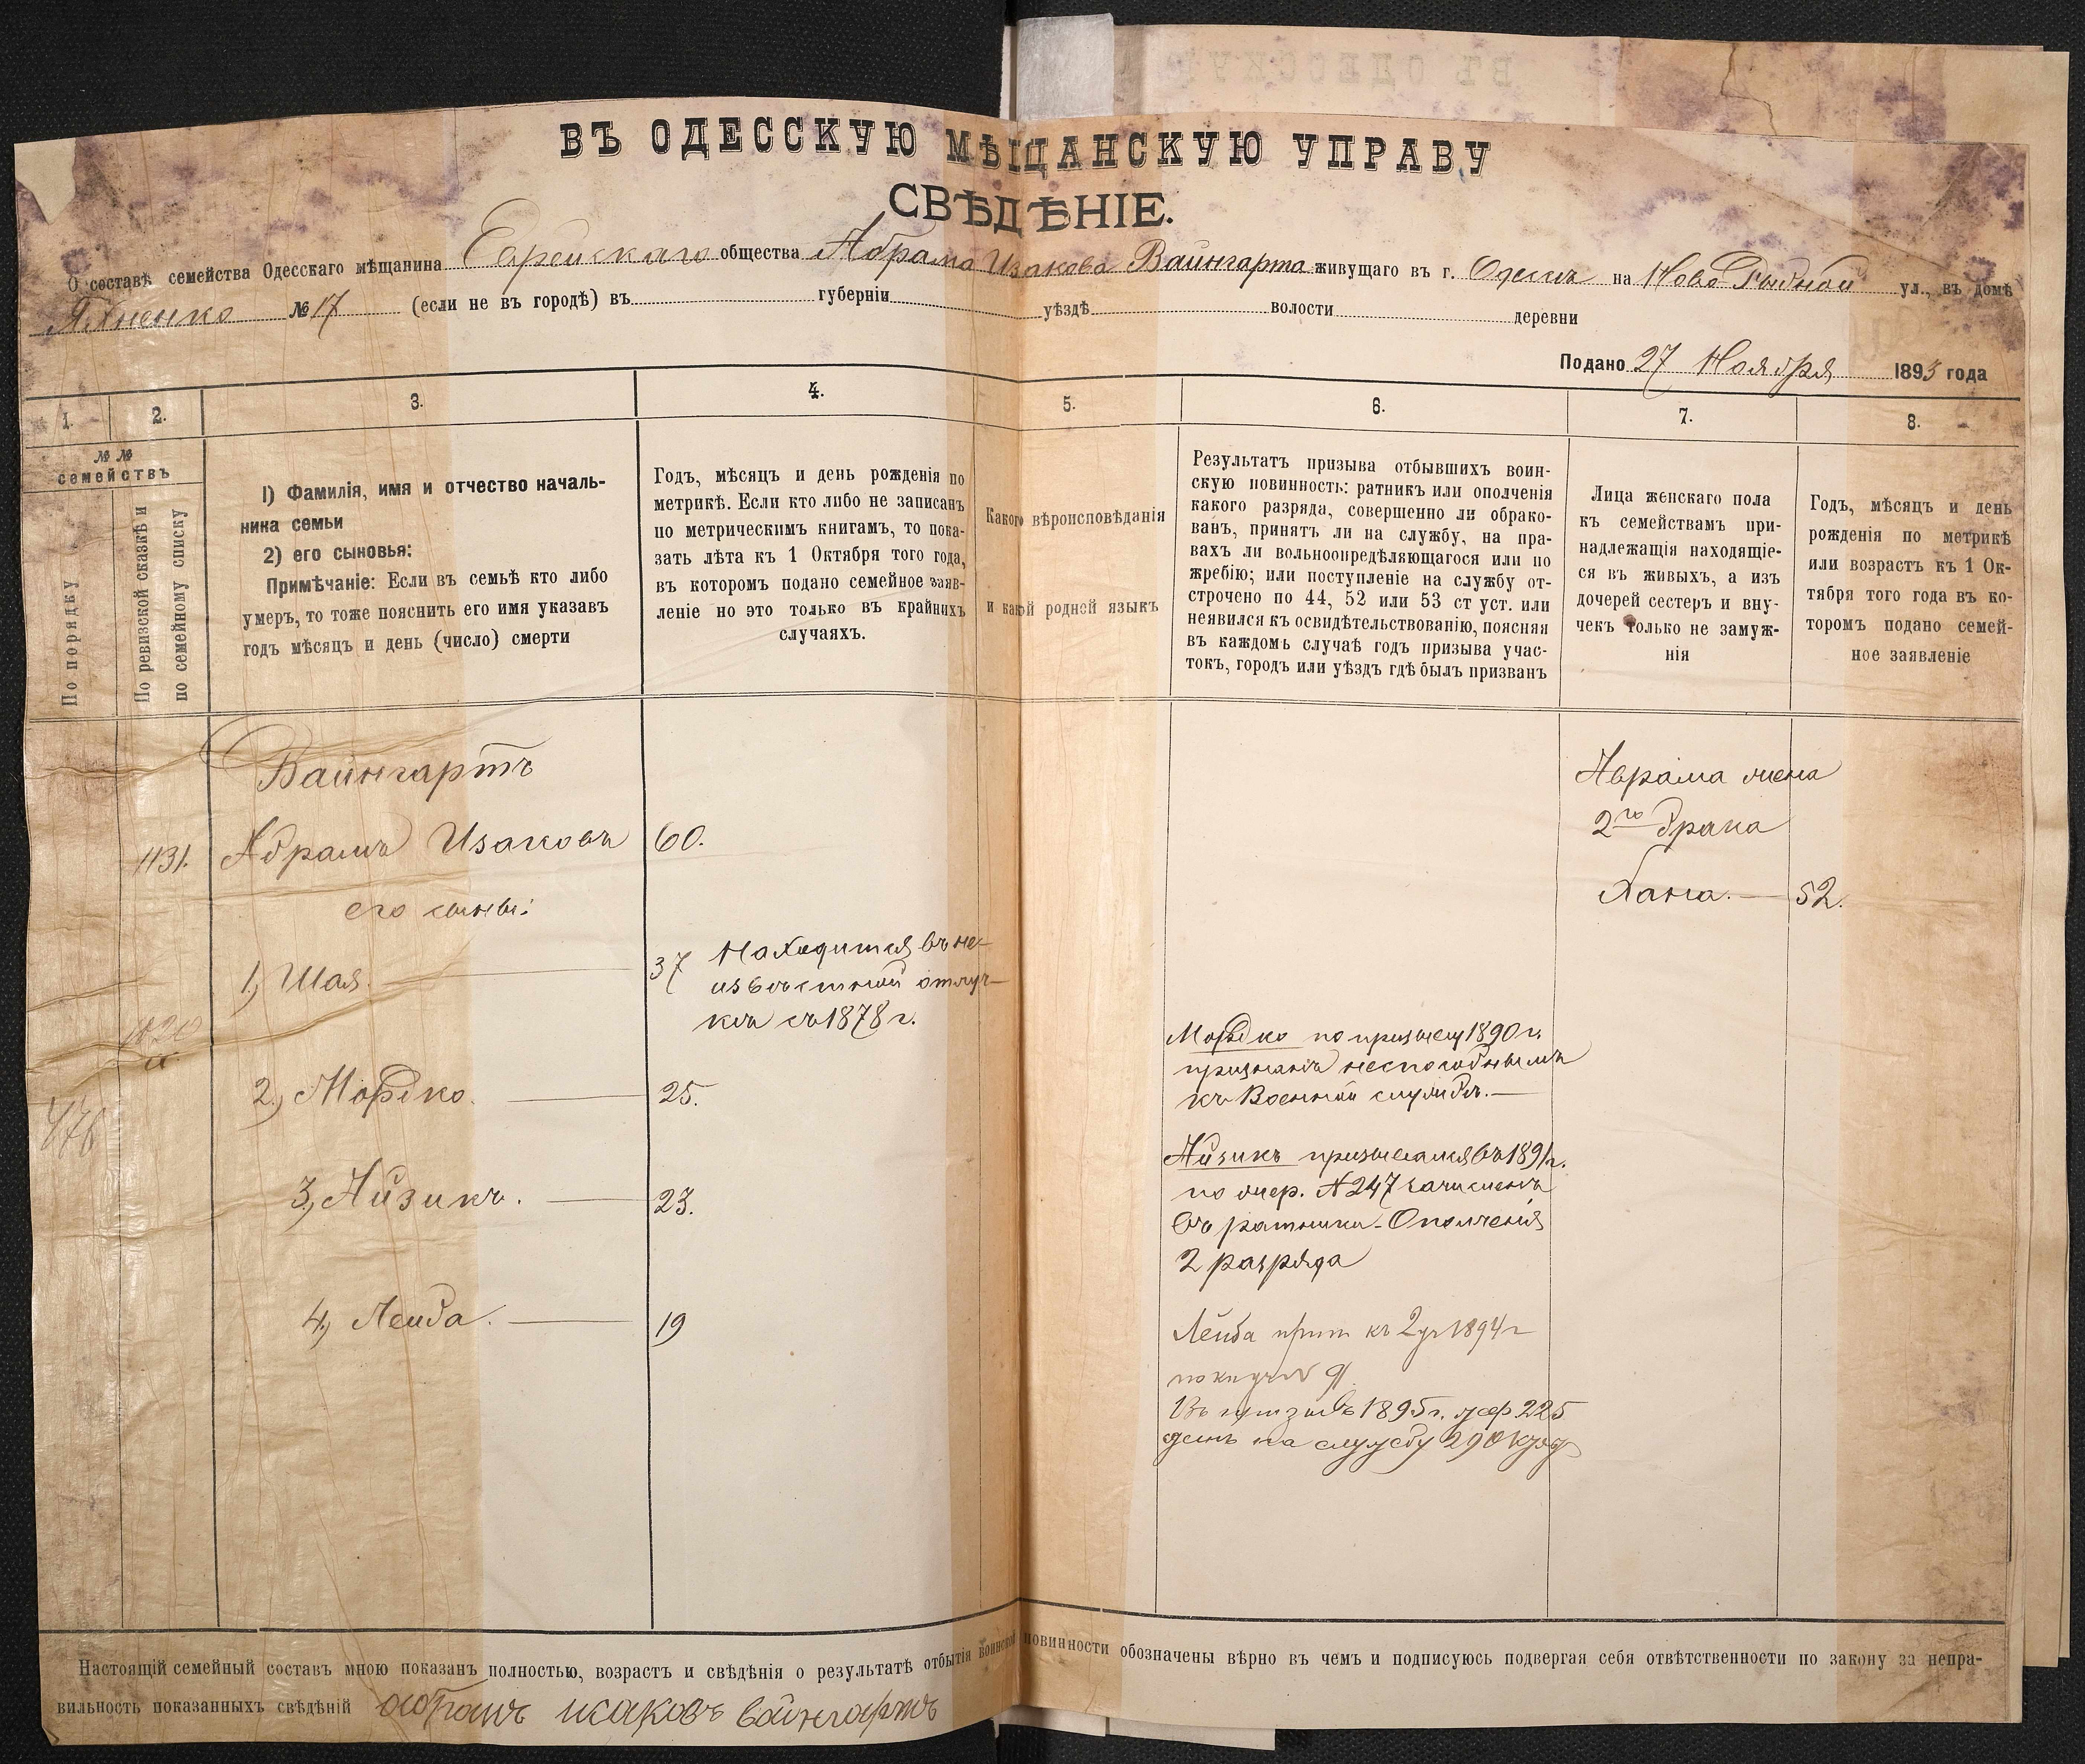 ВЪ ОДЕССКУЮ МѢЩАНСКУЮ УПРАВУ
СВѢДѢНІЕ.
О составѣ семейства Одесскаго мѣщанина Еврейскаго общества Абрама Изакова Вайнгарта живущаго въ г. Одессѣ на Ново Рыбной ул., въ домѣ
Яхненко № 17 (если не въ городѣ) въ губерніи уѣздѣ волости деревни
Подано 27 Ноября 1893 года
1.
2.
3.
4.
5.
6.
7.
8.
№ №
семействъ
По порядку
По ревизской сказкѣ и
по семейному списку
1) Фамилія, имя и отчество началь-
ника семьи
2) его сыновья:
Примѣчаніе: Если въ семьѣ кто либо
умеръ, то тоже пояснить его имя указавъ
годъ мѣсяцъ и день (число) смерти
Годъ, мѣсяцъ и день рожденія по
метрикѣ. Если кто либо не записанъ
по метрическимъ книгамъ, то пока-
зать лѣта къ 1 Октября того года,
въ которомъ подано семейное заяв-
леніе но это только въ крайнихъ
случаяхъ.
Какого вѣроисповѣданія
и какой родней языкъ
Результатъ призыва отбывшихъ воин-
скую повинность: ратникъ или ополченія
какого разряда, совершенно ли обрако-
ванъ, принятъ ли на службу, на пра-
вахъ ли вольноопредѣляющагося или по
жребію; или поступленіе на службу от-
строчено по 44, 52 или 53 ст уст. или
неявился къ освидѣтельствованію, поясняя
въ каждомъ случаѣ годъ призыва учас-
токъ, городъ или уѣздъ гдѣ былъ призванъ
Лица женскаго пола
къ семействамъ при-
надлежащія находящіе-
ся въ живыхъ, а изъ
дочерей сестеръ и вну-
чекъ только не замуж-
нія
Годъ, мѣсяцъ и день
рожденія по метрикѣ
или возрастъ къ 1 Ок-
тября того года въ ко-
торомъ подано семей-
ное заявленіе
Вайнгартъ
1131. Абрамъ Изаковъ 60.
его сыновья:
1, Шая. 37 Находится въ не-
извѣстной отлуч-
кѣ съ 1878 г.
2, Мордко. 25.
476
3, Айзикъ. 23.
4, Лейба. 19
Мордко по призыву 1890 г.
признанъ неспособнымъ
къ Военной службѣ.
Айзикъ призывался въ 1891 г.
по жер. № 247 зачисленъ
въ ратники Ополченія
2 разряда
Лейба прип къ 2 уч 1894 г
Въ призывъ 1895 г. жер 225
на службу
Аврама жена
2го брака
Хана. 52.
Настоящій семейный составъ мною показанъ полностью, возрастъ и свѣдѣнія о результатѣ отбытія воинской повинности обозначены вѣрно въ чемъ и подписуюсь подвергая себя отвѣтственности по закону за непра-
вильность показанныхъ свѣдѣній абрамъ исаковъ вайнгартъ